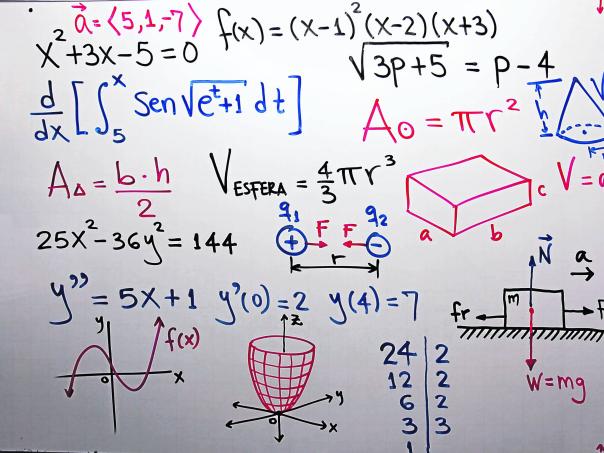 a⃗ = ⟨5, 1, -7⟩
f(x) = (x-1)²(x-2)(x+3)
x² + 3x - 5 = 0
√(3p+5) = p - 4
d/dx [∫₅ˣ Sen √(eᵗ+1) dt]
A⊙ = πr²
h
A△ = b·h/2
V ESFERA = 4/3 πr³
a
b
c
V = a
25x² - 36y² = 144
q₁
q₂
+
F
F
-
r
N⃗
a
y'' = 5x + 1 y'(0) = 2 y(4) = 7
fr
m
F
W = mg
y
f(x)
x
z
y
o
x
24 | 2
12 | 2
6 | 2
3 | 3
1